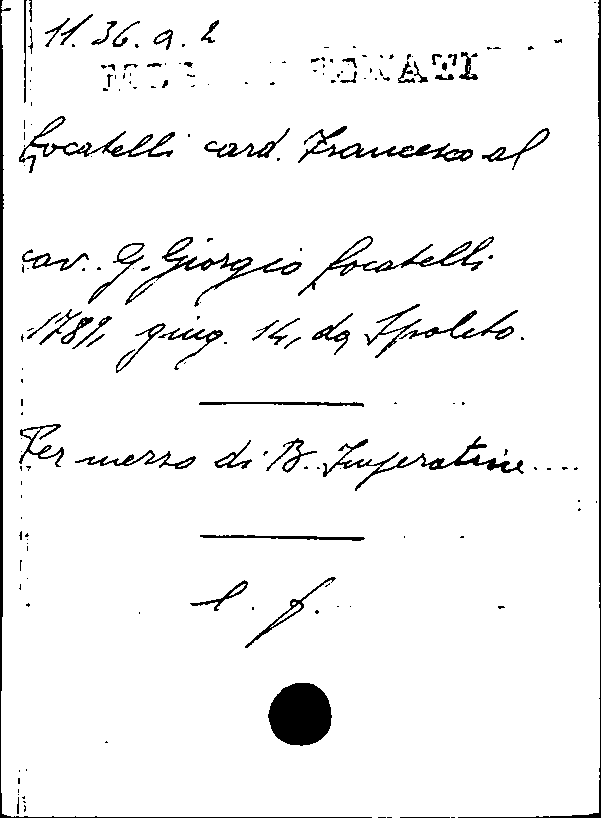 11. 36. a. 2
Locatelli card. Francesco al
cav. G. Giorgio Locatelli
1789, giug. 14, da Spoleto.
Per mezzo di B. Imperatrice....
l. f.